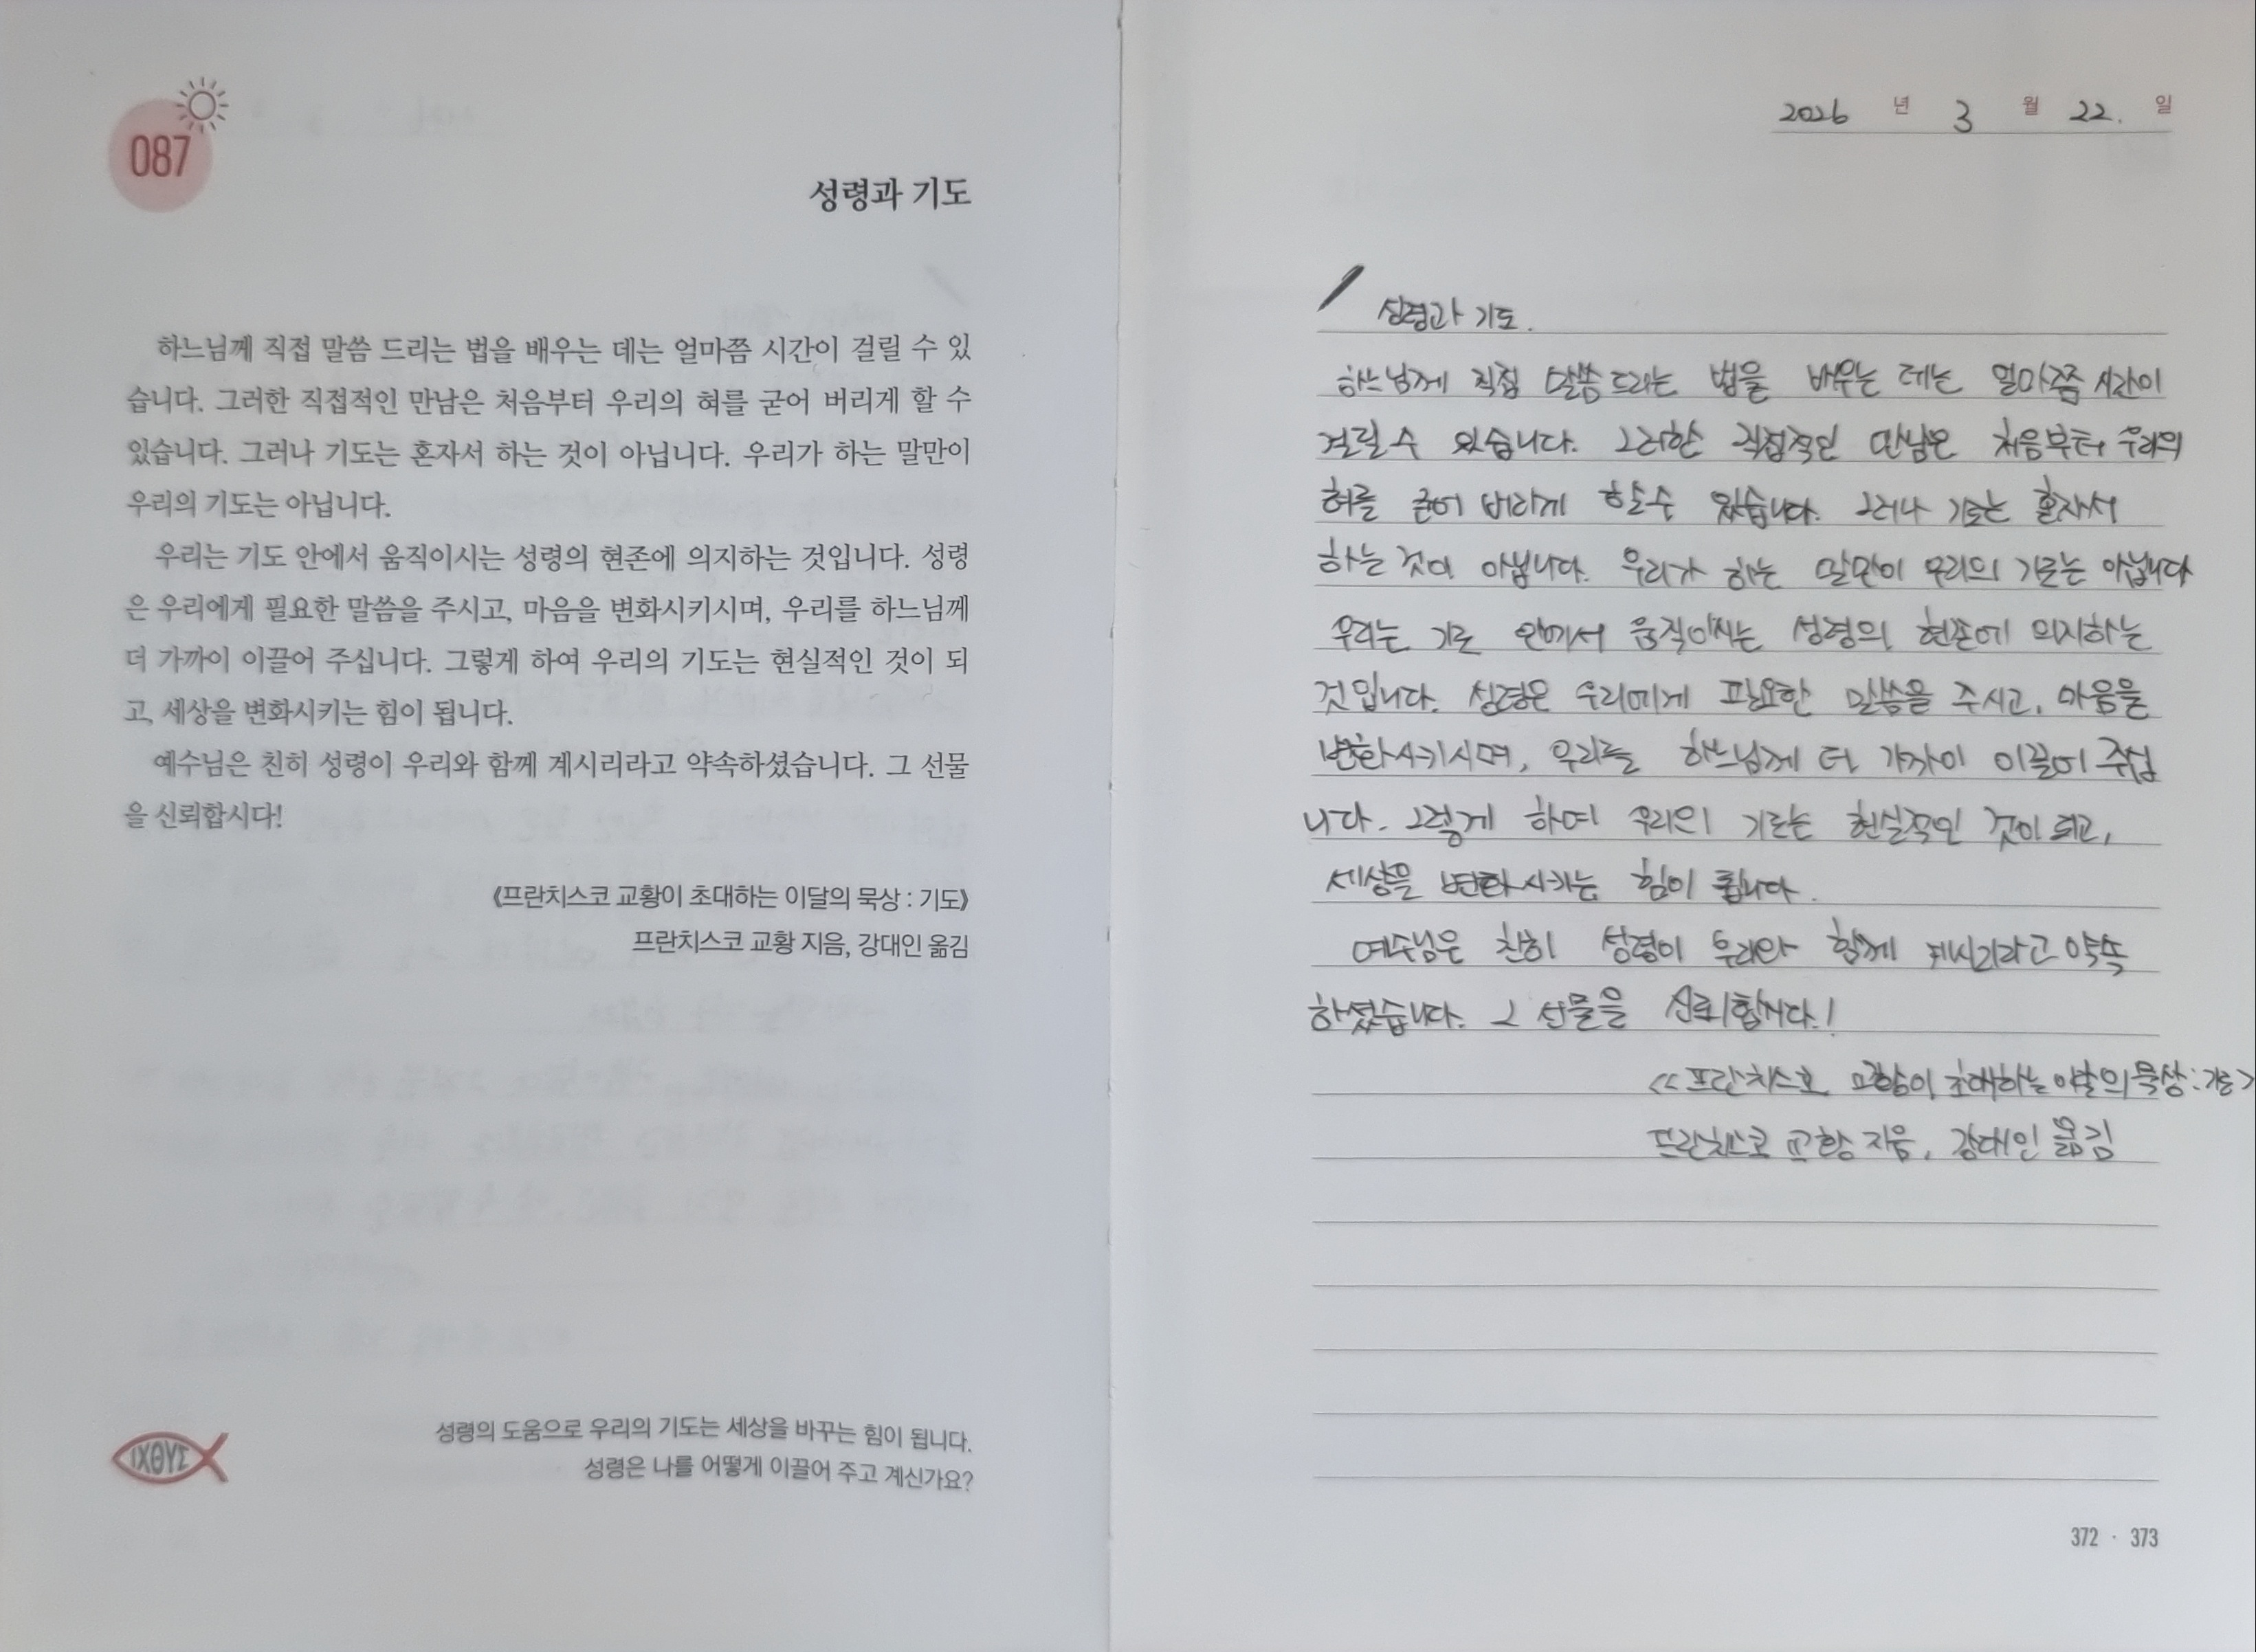 087
성령과 기도
하느님께 직접 말씀 드리는 법을 배우는 데는 얼마쯤 시간이 걸릴 수 있
습니다. 그러한 직접적인 만남은 처음부터 우리의 혀를 굳어 버리게 할 수
있습니다. 그러나 기도는 혼자서 하는 것이 아닙니다. 우리가 하는 말만이
우리의 기도는 아닙니다.
우리는 기도 안에서 움직이시는 성령의 현존에 의지하는 것입니다. 성령
은 우리에게 필요한 말씀을 주시고, 마음을 변화시키시며, 우리를 하느님께
더 가까이 이끌어 주십니다. 그렇게 하여 우리의 기도는 현실적인 것이 되
고, 세상을 변화시키는 힘이 됩니다.
예수님은 친히 성령이 우리와 함께 계시리라고 약속하셨습니다. 그 선물
을 신뢰합시다!
《프란치스코 교황이 초대하는 이달의 묵상 : 기도》
프란치스코 교황 지음, 강대인 옮김
ΙΧΘΥΣ
성령의 도움으로 우리의 기도는 세상을 바꾸는 힘이 됩니다.
성령은 나를 어떻게 이끌어 주고 계신가요?
2026 년 3 월 22. 일
성령과 기도.
하느님께 직접 말씀 드리는 법을 배우는 데는 얼마쯤 시간이
걸릴 수 있습니다. 그러한 직접적인 만남은 처음부터 우리의
혀를 굳어 버리게 할 수 있습니다. 그러나 기도는 혼자서
하는 것이 아닙니다. 우리가 하는 말만이 우리의 기도는 아닙니다
우리는 기도 안에서 움직이시는 성령의 현존에 의지하는
것입니다. 성령은 우리에게 필요한 말씀을 주시고, 마음을
변화시키시며, 우리를 하느님께 더 가까이 이끌어 주십
니다. 그렇게 하여 우리의 기도는 현실적인 것이 되고,
세상을 변화시키는 힘이 됩니다.
예수님은 친히 성령이 우리와 함께 계시리라고 약속
하셨습니다. 그 선물을 신뢰합시다.!
<<프란치스코 교황이 초대하는 이달의 묵상 : 기도>
프란치스코 교황 지음, 강대인 옮김
372 · 373